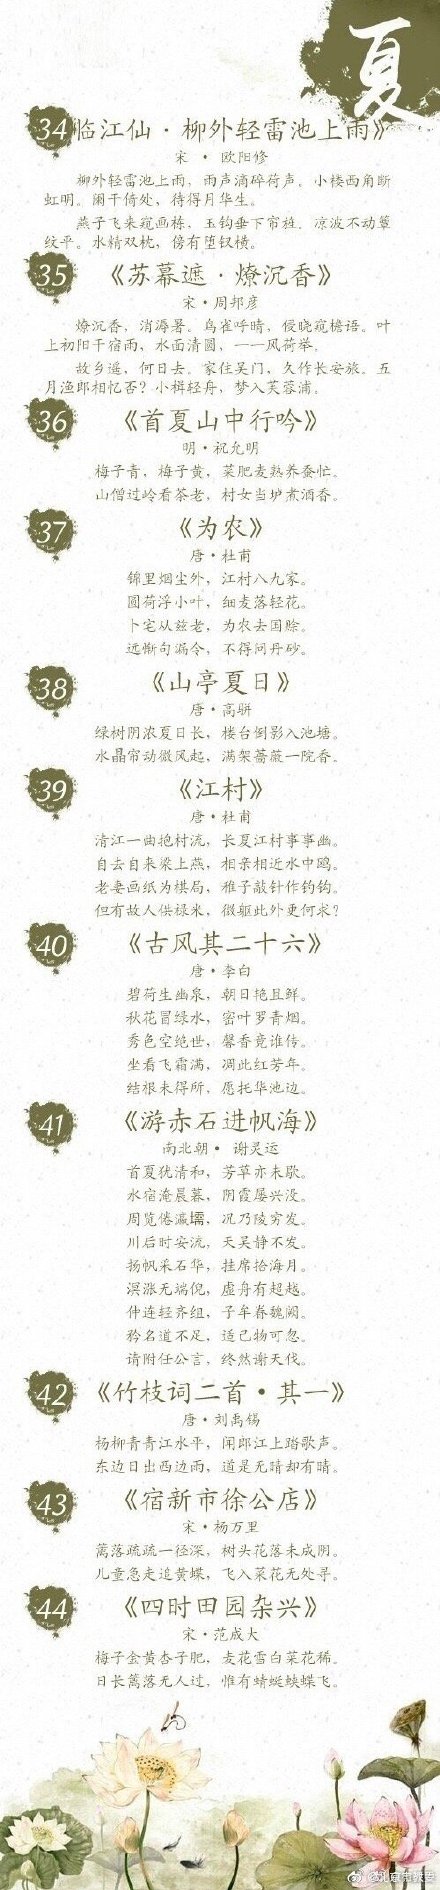 夏
34
临江仙·柳外轻雷池上雨》
宋 · 欧阳修
柳外轻雷池上雨，雨声滴碎荷声。小楼西角断
虹明。阑干倚处，待得月华生。
燕子飞来窥画栋，玉钩垂下帘旌。凉波不动簟
纹平。水精双枕，傍有堕钗横。
35
《苏幕遮·燎沉香》
宋·周邦彦
燎沉香，消溽暑。鸟雀呼晴，侵晓窥檐语。叶
上初阳干宿雨，水面清圆，一一风荷举。
故乡遥，何日去。家住吴门，久作长安旅。五
月渔郎相忆否？小楫轻舟，梦入芙蓉浦。
36
《首夏山中行吟》
明·祝允明
梅子青，梅子黄，菜肥麦熟养蚕忙。
山僧过岭看茶老，村女当垆煮酒香。
37
《为农》
唐·杜甫
锦里烟尘外，江村八九家。
圆荷浮小叶，细麦落轻花。
卜宅从兹老，为农去国赊。
远惭句漏令，不得问丹砂。
38
《山亭夏日》
唐·高骈
绿树阴浓夏日长，楼台倒影入池塘。
水晶帘动微风起，满架蔷薇一院香。
39
《江村》
唐·杜甫
清江一曲抱村流，长夏江村事事幽。
自去自来梁上燕，相亲相近水中鸥。
老妻画纸为棋局，稚子敲针作钓钩。
但有故人供禄米，微躯此外更何求？
40
《古风其二十六》
唐·李白
碧荷生幽泉，朝日艳且鲜。
秋花冒绿水，密叶罗青烟。
秀色空绝世，馨香竟谁传。
坐看飞霜满，凋此红芳年。
结根未得所，愿托华池边。
41
《游赤石进帆海》
南北朝· 谢灵运
首夏犹清和，芳草亦未歇。
水宿淹晨暮，阴霞屡兴没。
周览倦瀛壖，况乃陵穷发。
川后时安流，天吴静不发。
扬帆采石华，挂席拾海月。
溟涨无端倪，虚舟有超越。
仲连轻齐组，子牟眷魏阙。
矜名道不足，适己物可忽。
请附任公言，终然谢天伐。
42
《竹枝词二首·其一》
唐·刘禹锡
杨柳青青江水平，闻郎江上踏歌声。
东边日出西边雨，道是无晴却有晴。
43
《宿新市徐公店》
宋·杨万里
篱落疏疏一径深，树头花落未成阴。
儿童急走追黄蝶，飞入菜花无处寻。
44
《四时田园杂兴》
宋·范成大
梅子金黄杏子肥，麦花雪白菜花稀。
日长篱落无人过，惟有蜻蜓蛱蝶飞。